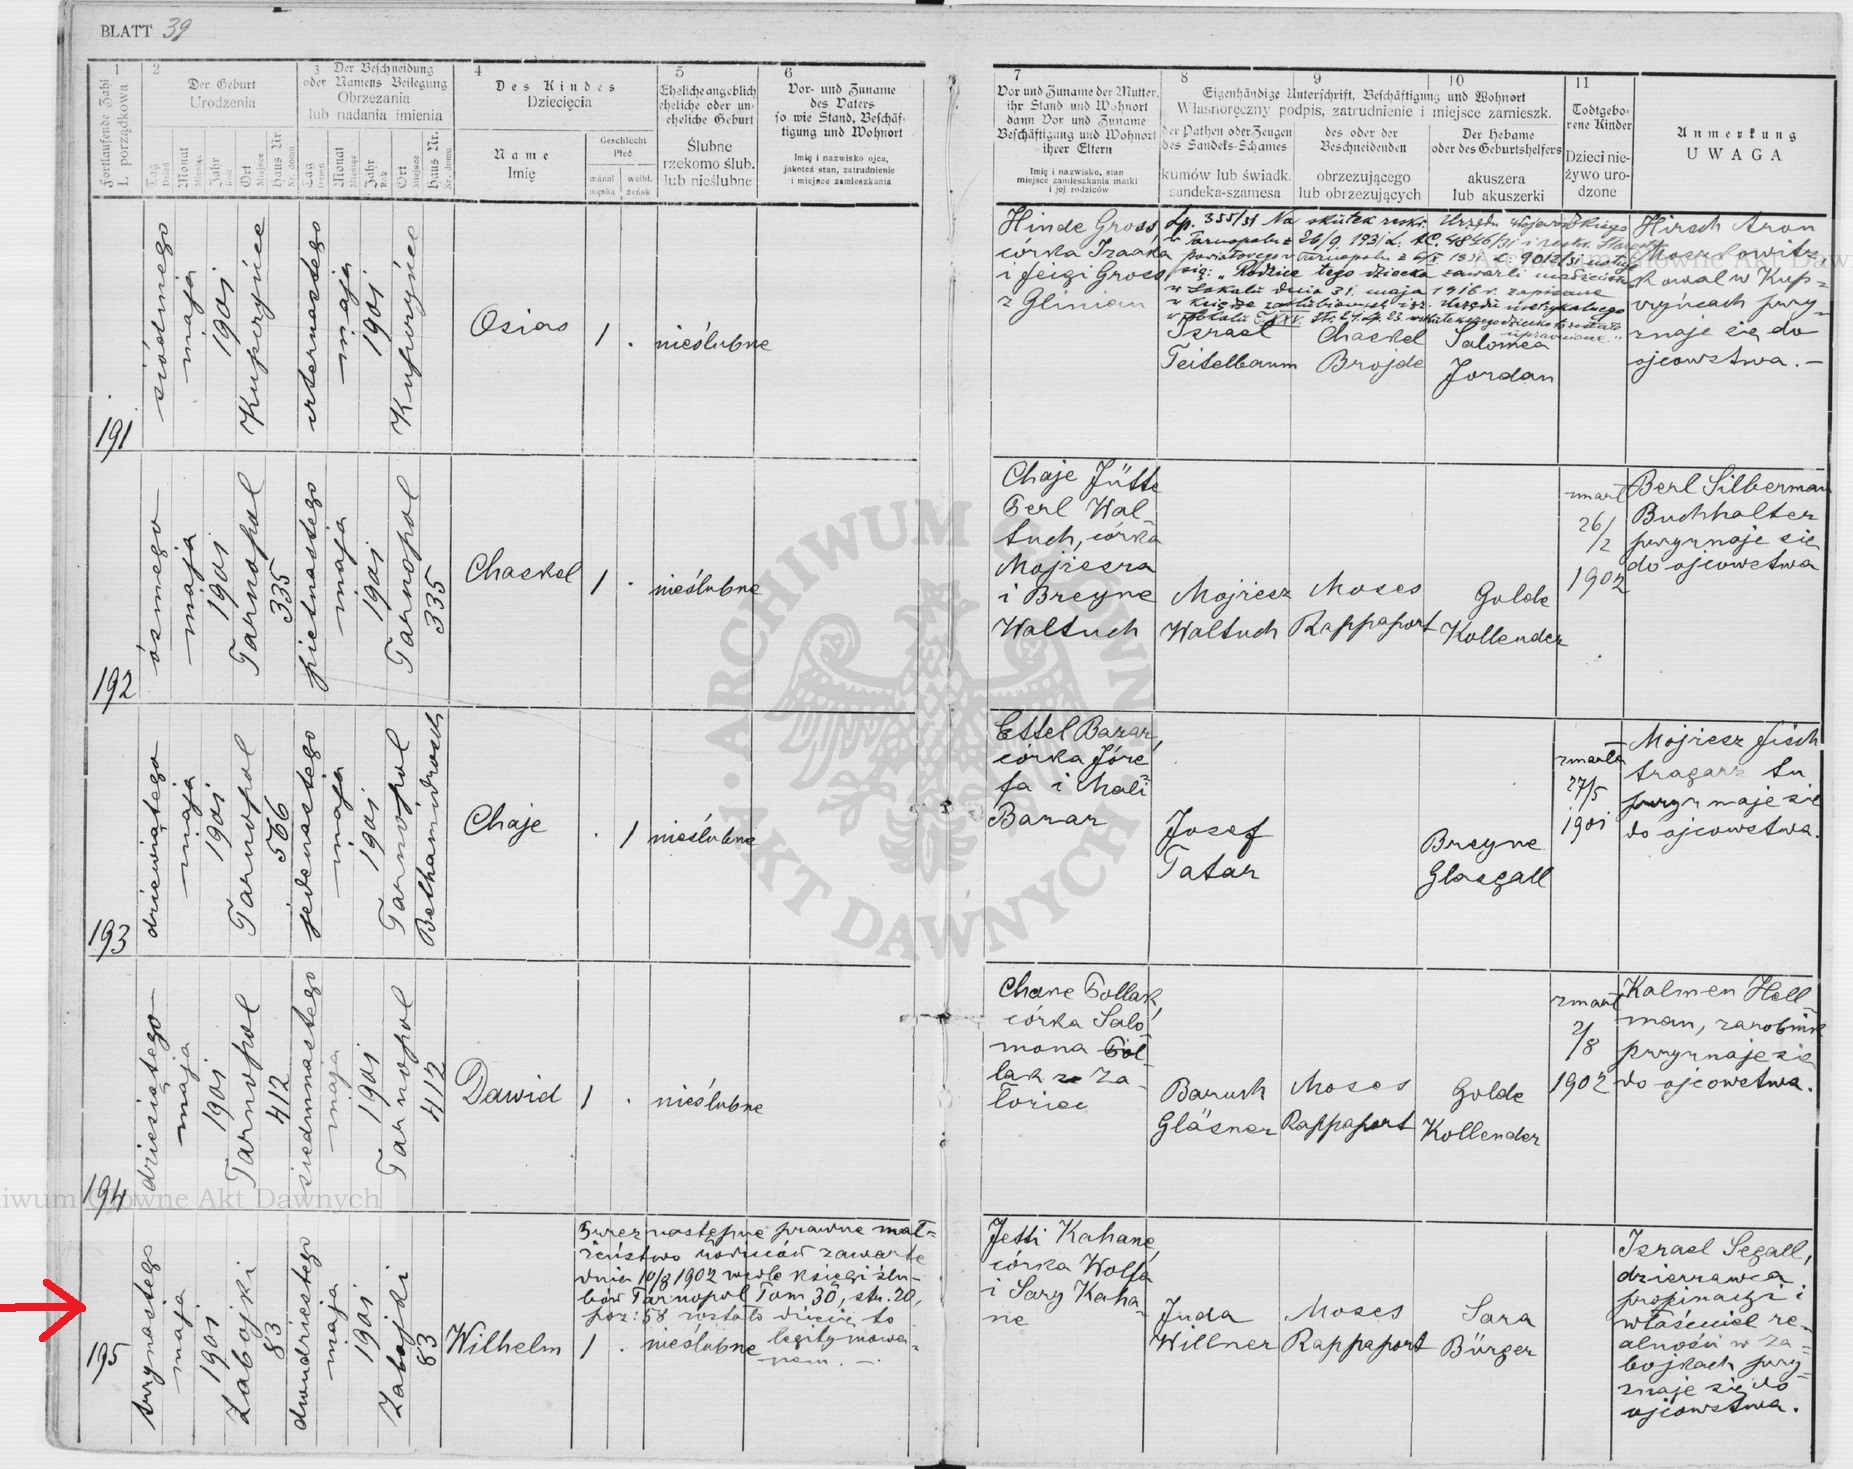 BLATT 39
1
Fortlaufende Zahl
L. porządkowa
2
Der Geburt
Urodzenia
Tag
Dzień
Monat
Miesiąc
Jahr
Rok
Ort
Miejsce
Haus Nr
Nr. domu
3
Der Beschneidung
oder Namens Beilegung
Obrzezania
lub nadania imienia
Tag
Dzień
Monat
Miesiąc
Jahr
Rok
Ort
Miejsce
Haus Nr.
Nr. domu
4
Des Kindes
Dziecięcia
Name
Imię
Geschlecht
Płeć
mänal
męska
weibl.
żeńsk
5
Eheliche angeblich
eheliche oder un-
eheliche Geburt
Ślubne
rzekomo ślub.
lub nieślubne
6
Vor- und Zuname
des Vaters
so wie Stand, Beschäf-
tigung und Wohnort
Imię i nazwisko ojca,
jakoteż stan, zatrudnienie
i miejsce zamieszkania
7
Vor und Zuname der Mutter,
ihr Stand und Wohnort
dann Vor und Zuname
Beschäftigung und Wohnort
ihrer Eltern
Imię i nazwisko, stan
miejsce zamieszkania matki
i jej rodziców
8
9
10
Eigenhändige Unterschrift, Beschäftigung und Wohnort
Własnoręczny podpis, zatrudnienie i miejsce zamieszk.
der Pathen oder Zeugen
des Sandeks-Schames
kumów lub świadk.
sandeka-szamesa
des oder der
Beschneidenden
obrzezującego
lub obrzezujących
Der Hebame
oder des Geburtshelfers
akuszera
lub akuszerki
11
Todtgebo-
rene Kinder
Dzieci nie-
żywo uro-
dzone
Anmerkung
UWAGA
191
siódmego
maja
1901
Kupczyńce
czternastego
maja
1901
Kupczyńce
Osias
1
.
nieślubne
Hinde Gross,
córka Izaaka
i Feigi Gross
z Glinian
Lp. 355/31 Na skutek reskr. Urzędu Wojewódzkiego
w Tarnopolu z 26/9. 1931 L. AC. 4846/31 i reskr. Starostwa
powiatowego w Tarnopolu z 1931 L: 9012/31 ustęp
się: „Rodzice tego dziecka zawarli małżeństwo
w Sokalu dnia 31. maja 1916 r. zapisane
w księdze zaślubionych izr. Urzędu metrykalnego
w Sokalu T. XXV. str. 27 Lp. 23. wskutek czego dziecko to zostało
uprawnione."
Israel
Teitelbaum
Chaskel
Brojde
Salomea
Jordan
Hirsch Aron
Moszkowitz
kowal w Kup-
czyńcach przy-
znaje się do
ojcowstwa. –
192
ósmego
maja
1901
Tarnopol
335
piętnastego
maja
1901
Tarnopol
335
Chaskel
1
.
nieślubne
Chaje Jütte
Perl Wal-
tuch, córka
Mojżesza
i Breyne
Waltuch
Mojżesz
Waltuch
Moses
Rappaport
Golde
Kollender
zmarł
26/
/2
1902
Berl Silberman
Buchhalter
przyznaje się
do ojcowstwa
193
dziewiątego
maja
1901
Tarnopol
566
jedenastego
maja
1901
Tarnopol
Bethamidrosch
Chaje
.
1
nieślubne
Ettel Barar,
córka Józe-
fa i Mali
Barar
Josef
Tatar
Breyne
Glasgall
zmarła
27/5
1901
Mojżesz Fisch
tragarz tu
przyznaje się
do ojcowstwa.
194
dziesiątego
maja
1901
Tarnopol
412
siedmnastego
maja
1901
Tarnopol
412
Dawid
1
.
nieślubne
Chane Pollak,
córka Salo-
mona Pol-
lak z Za-
łoziec
Baruch
Gläsner
Moses
Rappaport
Golde
Kollender
zmarł
2/
/8
1902
Kalmen Hell-
man, zarobnik
przyznaje się
do ojcowstwa.
195
trzynastego
maja
1901
Zabojki
83
dwudziestego
maja
1901
Zabojki
83
Wilhelm
1
.
nieślubne
Przez następne prawne mał-
żeństwo rodziców zawarte
dnia 10/8 1902 wedle księgi ślu-
bów Tarnopol Tom 30, str. 20,
poz: 58 zostało dziecię to
legitymowa-
nem. –
Jetti Kahane,
córka Wolfa
i Sary Kaha-
ne
Juda
Willner
Moses
Rappaport
Sara
Bürger
Izrael Segall,
dzierżawca
propinacji i
właściciel re-
alności w Za-
bojkach przy-
znaje się do
ojcowstwa.
ARCHIWUM GŁÓWNE AKT DAWNYCH
Archiwum Główne Akt Dawnych